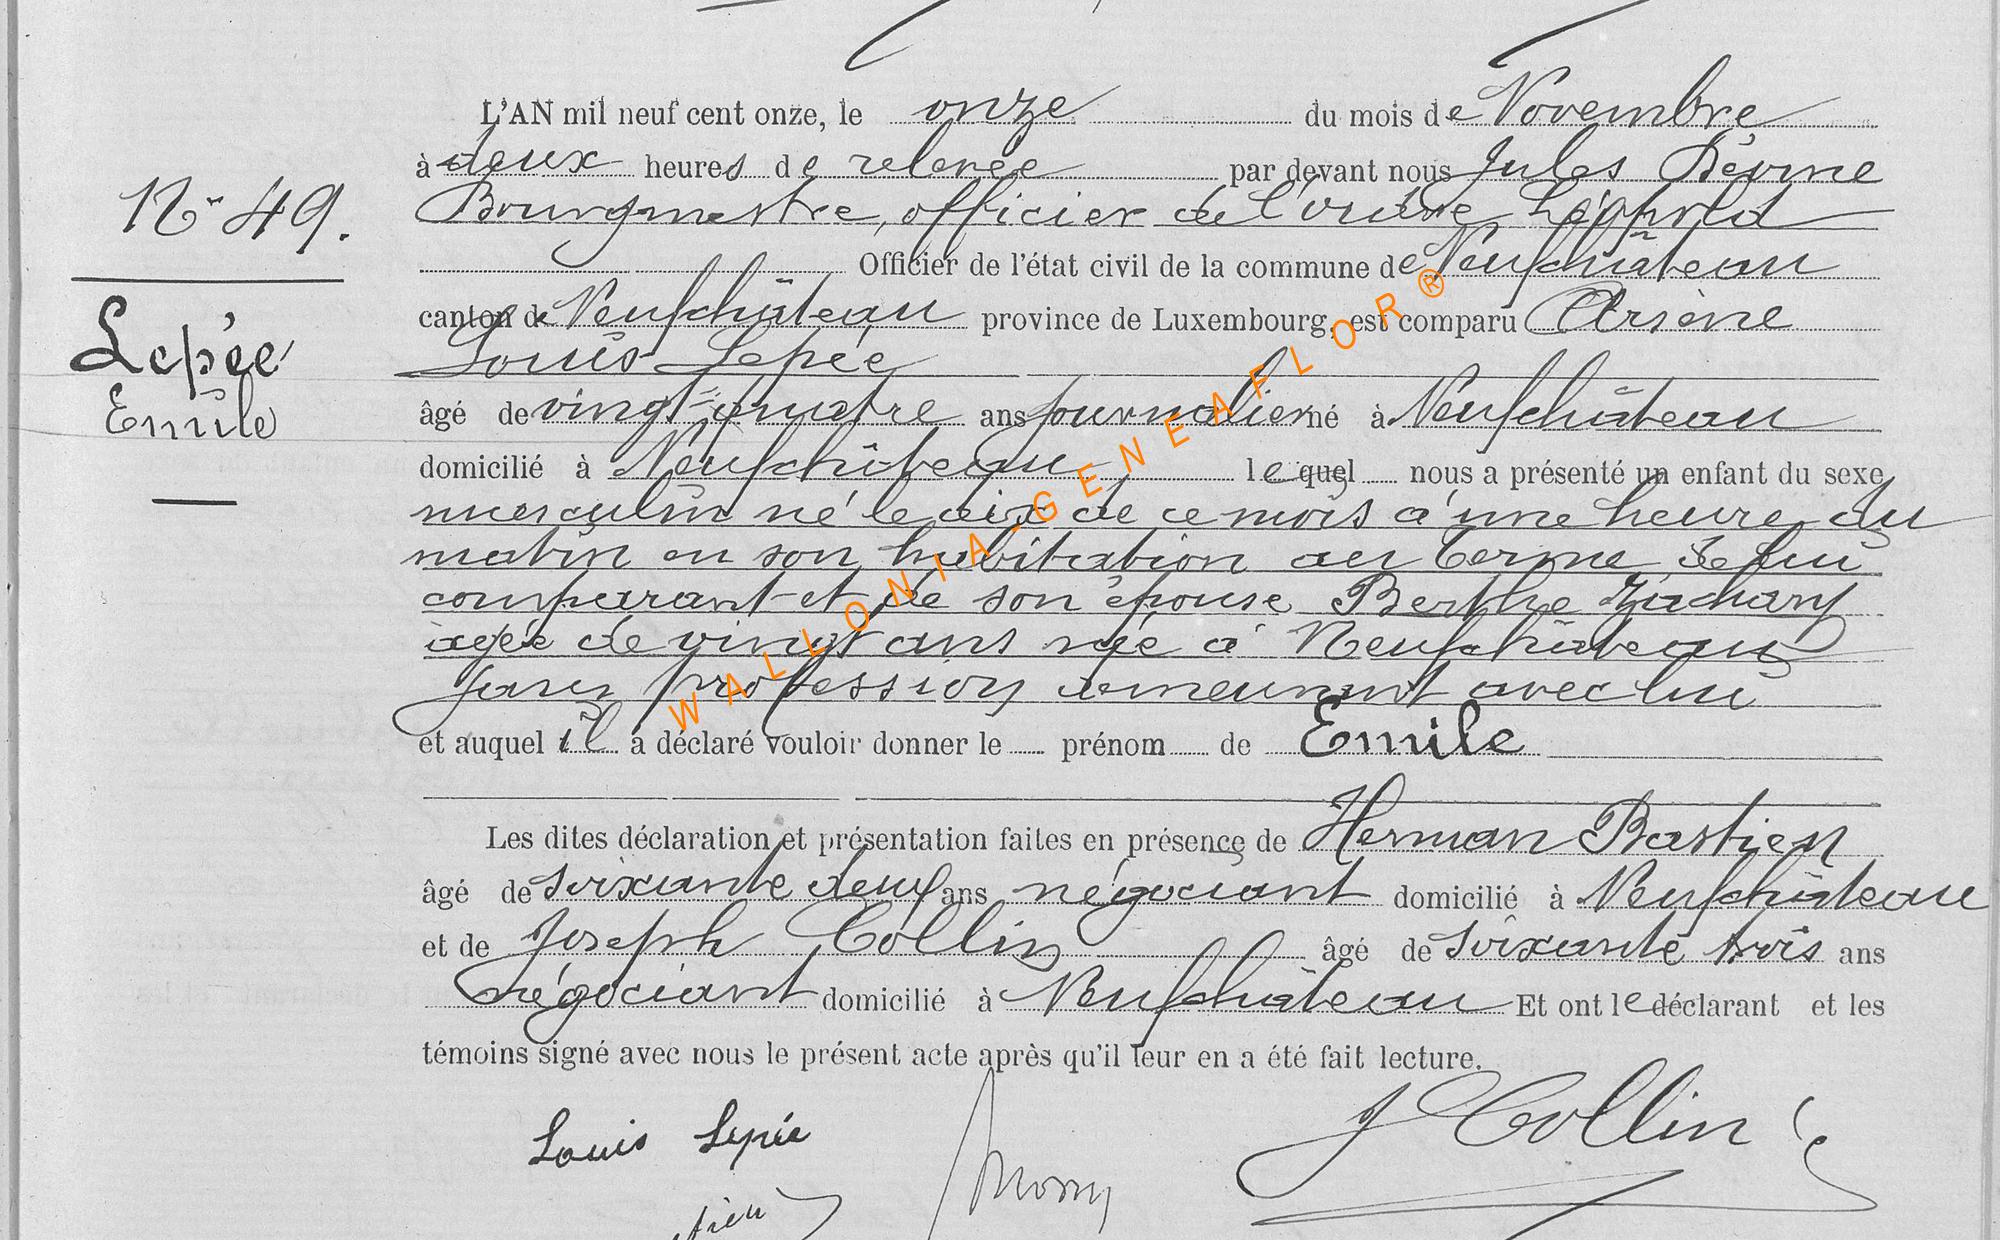 L'AN mil neuf cent onze, le onze du mois de Novembre
à deux heures de relevée par devant nous Jules
Bourgmestre, officier de l'ordre Léopold
Officier de l'état civil de la commune de Neufchâteau
canton de Neufchâteau province de Luxembourg, est comparu Arsène
Louis Lepée
âgé de vingt-quatre ans journalier né à Neufchâteau
domicilié à Neufchâteau lequel nous a présenté un enfant du sexe
masculin né le dix de ce mois à une heure du
matin en son habitation au Terme de lui
comparant et de son épouse Berthe Zachary
agée de vingt ans née à Neufchâteau
sans profession demeurant avec lui
et auquel il a déclaré vouloir donner le prénom de Emile
Les dites déclaration et présentation faites en présence de Herman Bastien
âgé de soixante deux ans négociant domicilié à Neufchâteau
et de Joseph Collin âgé de soixante trois ans
négociant domicilié à Neufchâteau Et ont le déclarant et les
témoins signé avec nous le présent acte après qu'il leur en a été fait lecture.
No 49.
Lepée
Emile
Louis Lepée
J Collin
WALLONIA-GENEAFLOR®